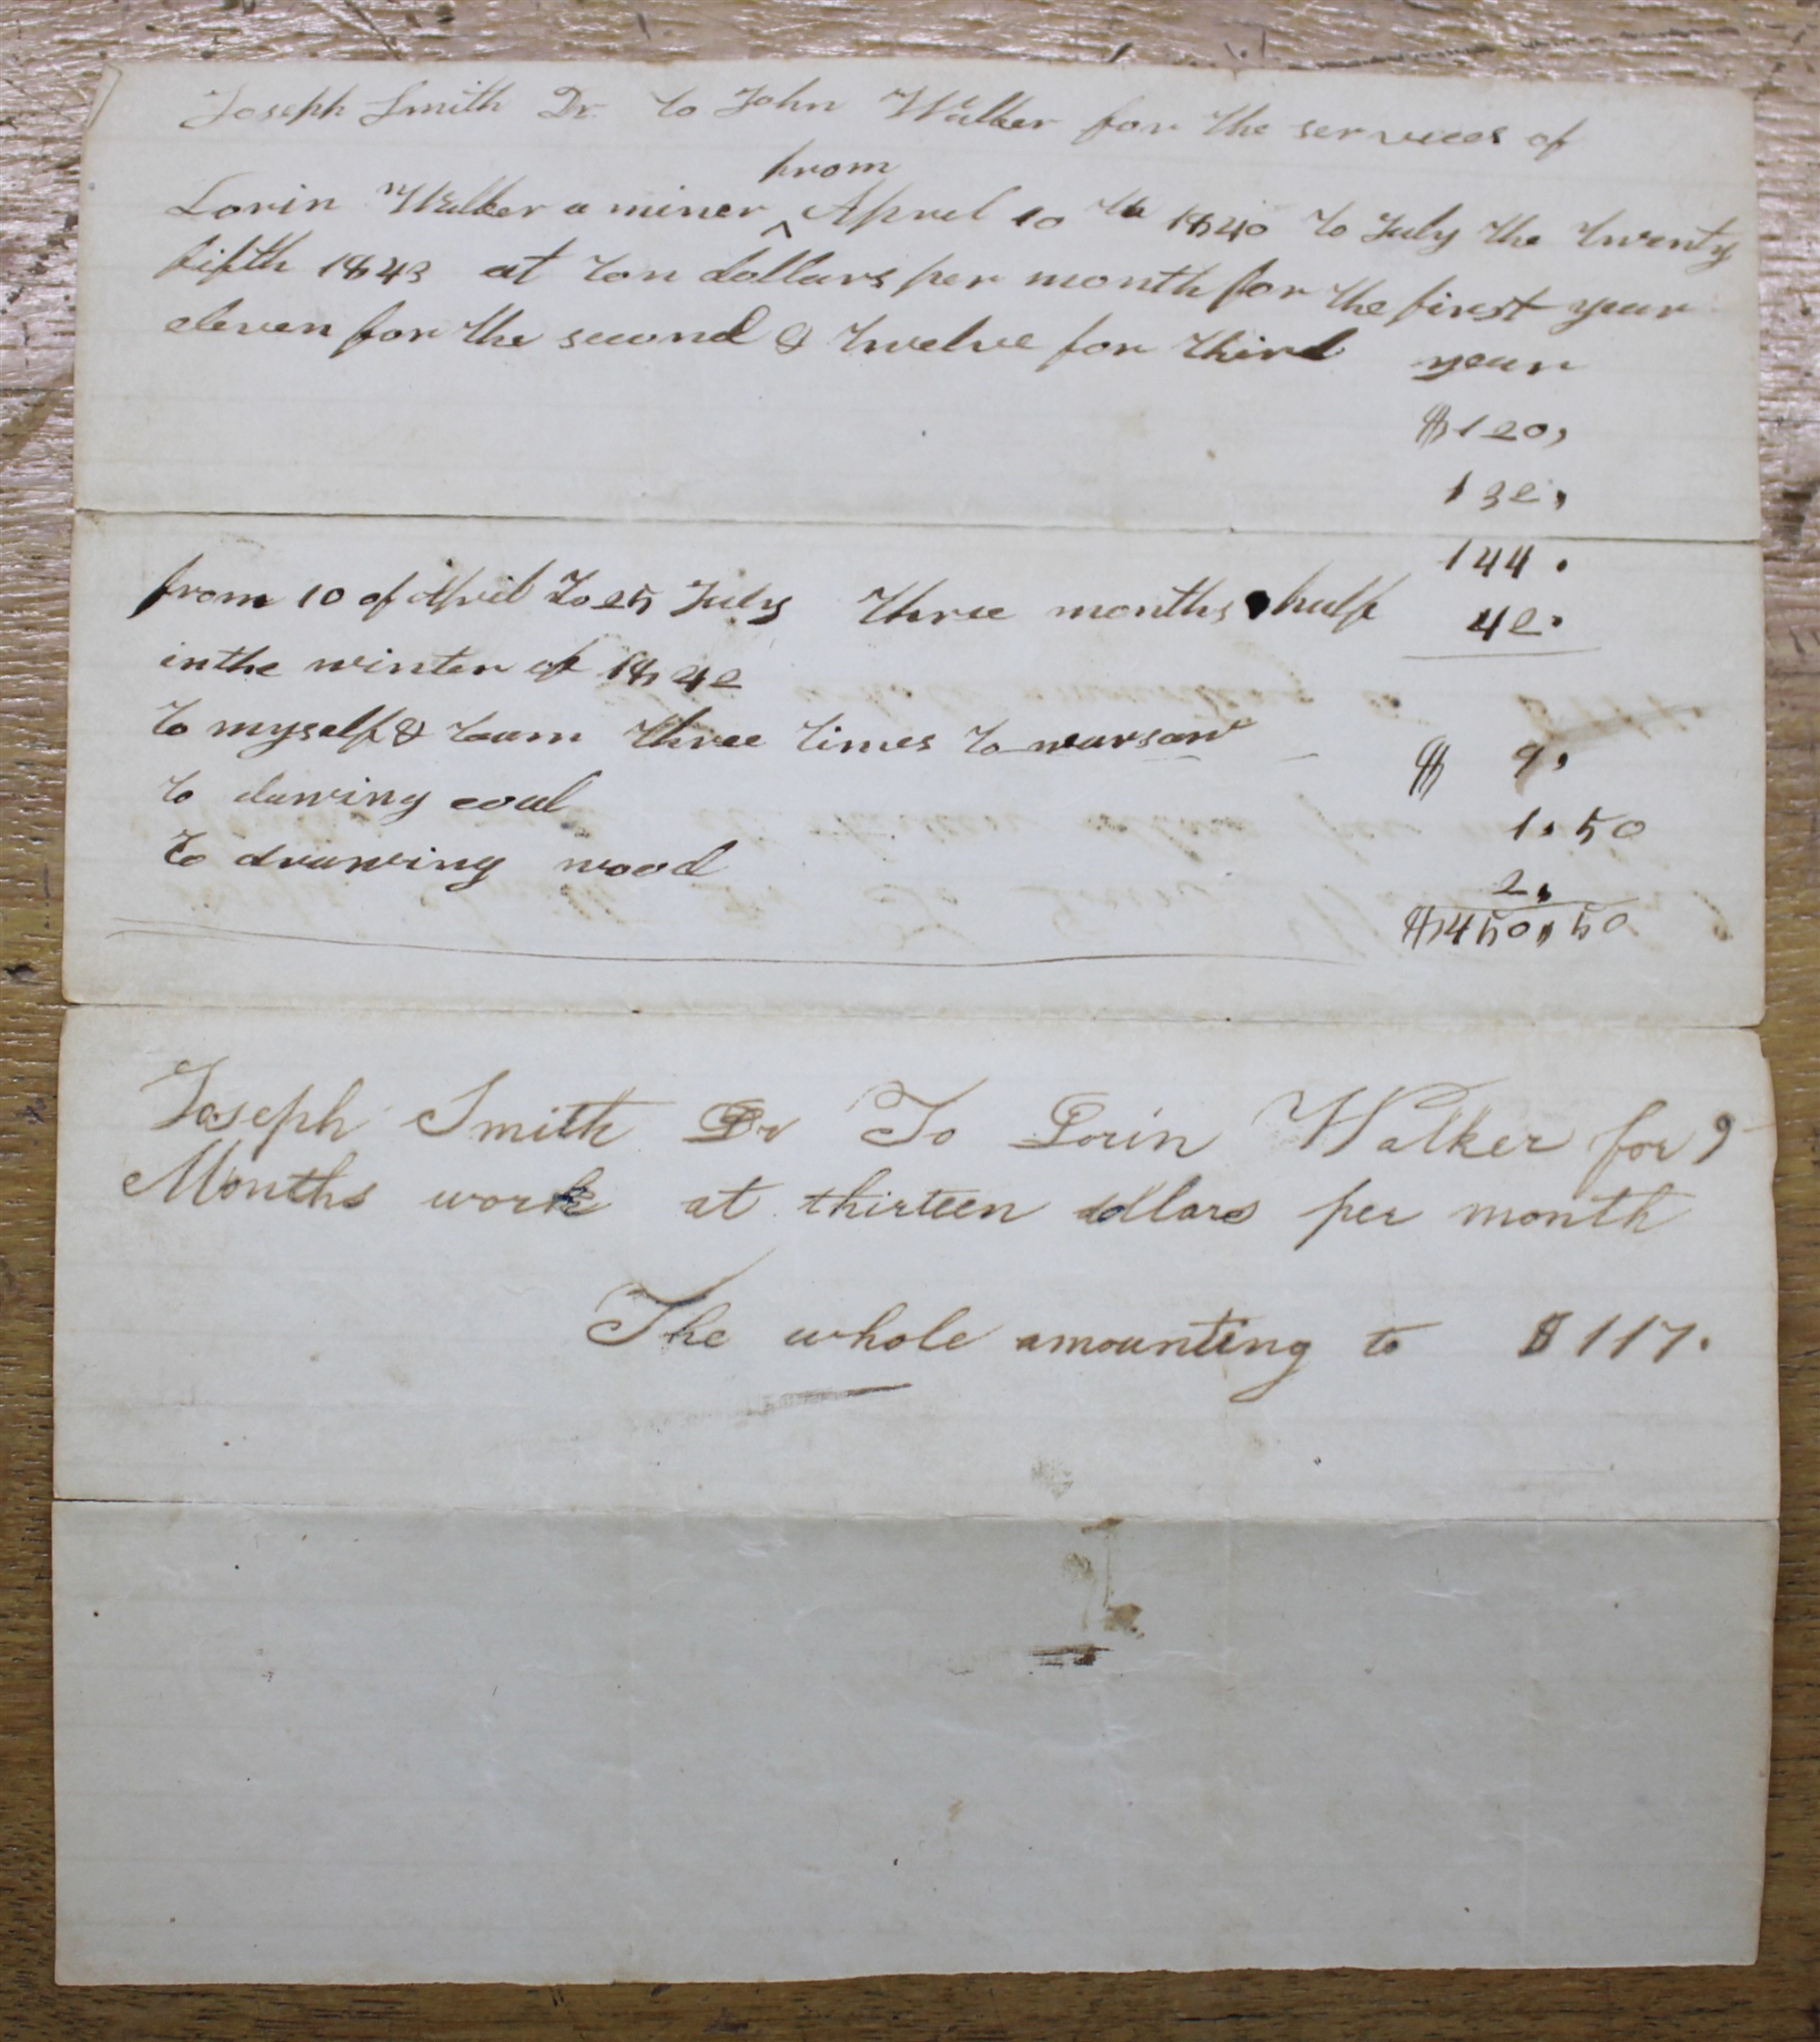 Joseph Smith Dr. to John Walker for the services of
from
Lorin Walker a miner ^ April 10 th 1840 to July the twenty
fifth 1843 at ten dollars per month for the first year
eleven for the second & twelve for third year
$120,
132,
144.
from 10 of April to 25 July three months half 42.
in the winter of 1842
to myself & team three times to warsaw $ 9,
to drawing coal 1.50
to drawing wood 2,
$450,50
Joseph Smith Dr To Lorin Walker for 9
Months work at thirteen dollars per month
The whole amounting to $117.